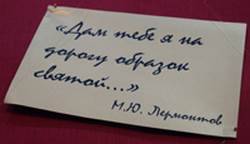 «Дам тебе я на
дорогу образок
святой...»
М.Ю. Лермонтов